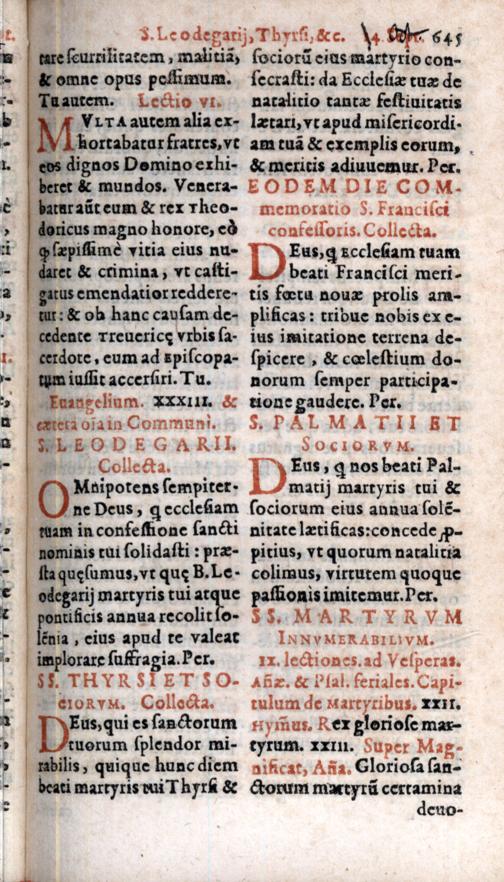 S. Leodegarij, Thyrsi, &c. 645
tare scurrilitatem, malitiã,
& omne opus pessimum.
Tu autem. Lectio vi.
MVLTA autem alia ex-
hortabatur fratres, vt
eos dignos Domino exhi-
beret & mundos. Venera-
batur aũt eum & rex Theo-
doricus magno honore, eò
ꝙ sæpissimè vitia eius nu-
daret & crimina, vt casti-
gatus emendatior reddere-
tur: & ob hanc causam de-
cedente Treuericę vrbis sa-
cerdote, eum ad Episcopa-
tum iussit accersiri. Tu.
Euangelium. XXXIII. &
cætera oĩa in Communi.
S. LEODEGARII.
Collecta.
OMnipotens sempiter-
ne Deus, ꝗ ecclesiam
tuam in confessione sancti
nominis tui solidasti: præ-
sta quęsumus, vt quę B. Le-
odegarij martyris tui atque
pontificis annua recolit so-
lẽnia, eius apud te valeat
implorare suffragia. Per.
SS. THYRSI ET SO-
CIORVM. Collecta.
DEus, qui es sanctorum
tuorum splendor mi-
rabilis, quique hunc diem
beati martyris tui Thyrsi &
sociorũ eius martyrio con-
secrasti: da Ecclesiæ tuæ de
natalitio tantæ festiuitatis
lætari, vt apud misericordi-
am tuã & exemplis eorum,
& meritis adiuuemur. Per.
EODEM DIE COM-
memoratio S. Francisci
confessoris. Collecta.
DEus, ꝗ Ecclesiam tuam
beati Francisci meri-
tis fœtu nouæ prolis am-
plificas: tribue nobis ex e-
ius imitatione terrena de-
spicere, & cœlestium do-
norum semper participa-
tione gaudere. Per.
S. PALMATII ET
SOCIORVM.
DEus, ꝗ nos beati Pal-
matij martyris tui &
sociorum eius annua solẽ-
nitate lætificas: concede ꝓ-
pitius, vt quorum natalitia
colimus, virtutem quoque
passionis imitemur. Per.
SS. MARTYRVM
INNVMERABILIVM.
ix. lectiones. ad Vesperas.
Añæ. & Psal. feriales. Capi-
tulum de Martyribus. XXII.
Hym̃us. Rex gloriose mar-
tyrum. XXIII. Super Mag-
nificat, Aña. Gloriosa san-
ctorum martyrũ certamina
deuo-